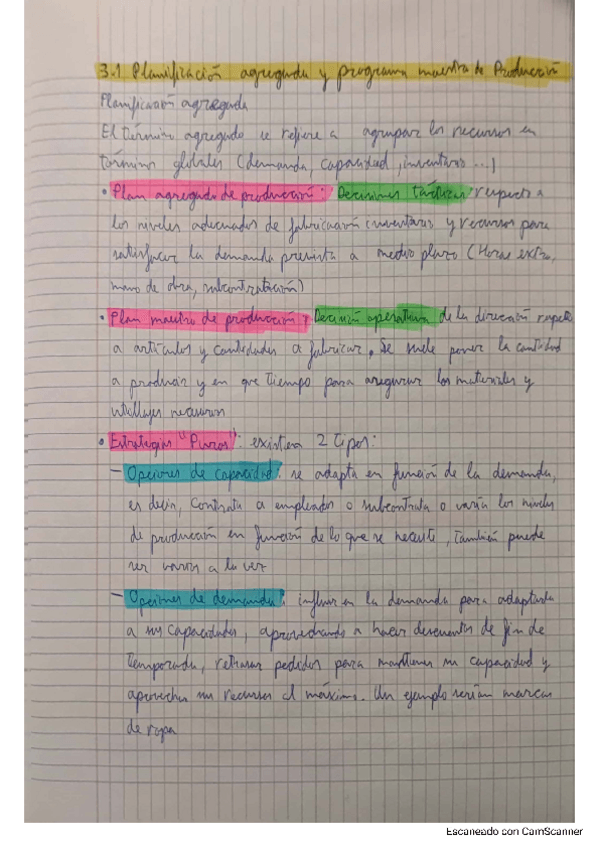 3.1 Planificación agregada y programa maestro de Producción
Planificación agregada
El término agregado se refiere a agrupar los recursos en
términos globales (demanda, capacidad, inventarios ...)
• Plan agregado de producción: Decisiones tácticas respecto a
los niveles adecuados de fabricación inventarios y recursos para
satisfacer la demanda prevista a medio plazo (Horas extra,
mano de obra, subcontratación)
• Plan maestro de producción: Decisión operativa de la dirección respecto
a artículos y cantidades a fabricar. Se suele poner la cantidad
a producir y en que tiempo para asegurar los materiales y
utillajes necesarios
• Estrategias "Puras": existen 2 tipos:
– Opciones de capacidad: se adapta en función de la demanda,
es decir, contrata a empleados o subcontrata o varía los niveles
de producción en función de lo que se necesite, también puede
ser varios a la vez
– Opciones de demanda: influir en la demanda para adaptarla
a sus capacidades, aprovechando a hacer descuentos de fin de
temporada, retrasar pedidos para mantener su capacidad y
aprovechar sus recursos al máximo. Un ejemplo serían marcas
de ropa
Escaneado con CamScanner